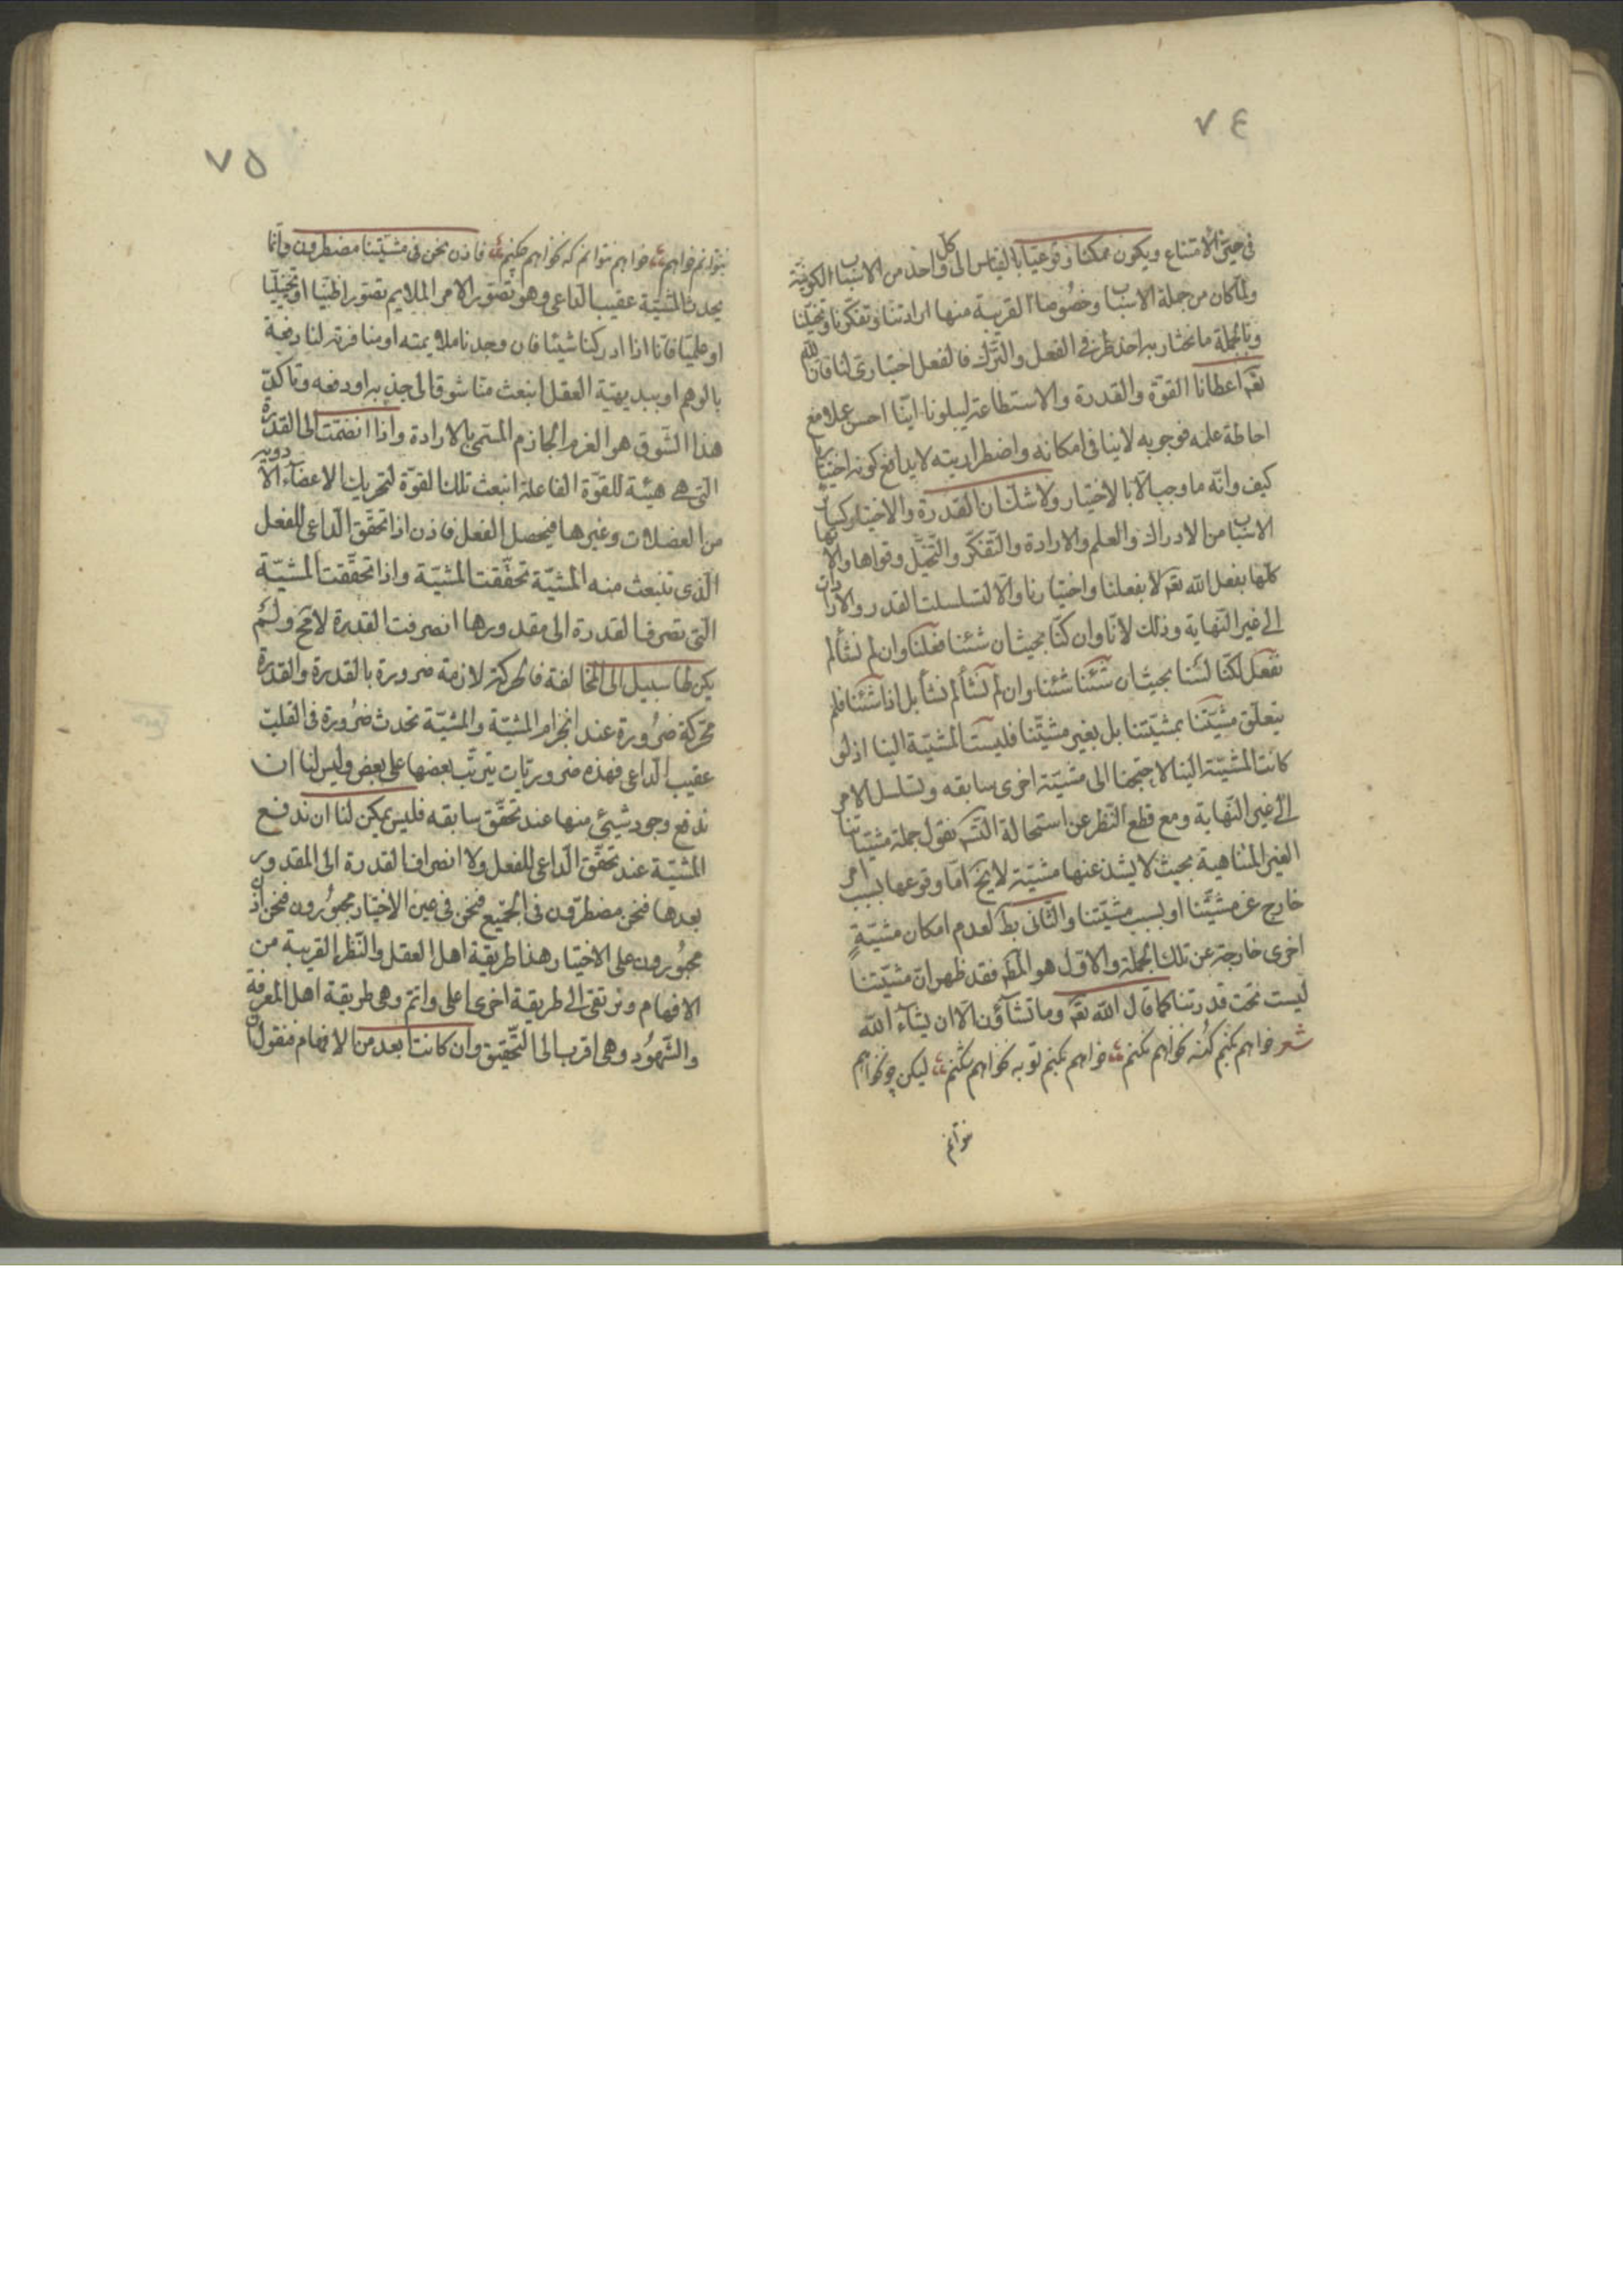 ٧٤
في حيّز الامتناع ويكون ممكنا وقوعيّا بالقياس الى كل واحد من الاسباب الكونية
ولمّا كان من جملة الاسباب وخصُوصا القريبة منها ارادتنا وتفكّرنا وتخيّلنا
وبالجملة ما نختار به احد طرفي الفعل والترك فالفعل اختياري لنا فان الله
تعَ اعطانا القوّة والقدرة والاستطاعة ليبلونا ايّنا احسن عملا مع
احاطة علمه فوجوبه لا ينافي امكانه واضطراريته لا يدافع كونه اختياريا
كيف وانّه ما وجب الّا بالاختيار ولا شك ان القدرة والاختيار كسائر
الاسباب من الادراك والعلم والارادة والتّفكّر والتّخيّل وقواها والاتها
كلّها بفعل الله تعَ لا بفعلنا واختيارنا والّا لتسلسلت القدر والارادات
الى غير النّهاية وذلك لانّا وان كنّا بحيث ان شئنا فعلنا وان لم نشأ لم
نفعل لكنّا لسنا بحيث ان شئنا شئنا وان لم نشأ لم نشأ بل اذا شئنا فلم
يتعلّق مشيّتنا بمشيّتنا بل بغير مشيّتنا فليست المشيّة الينا اذ لو
كانت المشيّة الينا لاحتجنا الى مشيّة اخرى سابقه وتسلسل الامر
الى غير النّهاية ومع قطع النّظر عن استحالة التّسَ نقول جملة مشيّاتنا
الغير المتناهية بحيث لا يشذ عنها مشيّة لا يخَ امّا وقوعها بسبب امر
خارج عن مشيّتنا او بسبب مشيّتنا والثّاني بطَ لعدم امكان مشيّةٍ
اخرى خارجة عن تلك الجملة والاوّل هو المطَ فقد ظهر انّ مشيّتنا
ليست تحت قدرتنا كما قال الله تعَ وما تشآؤن الّا ان يشآء الله
شعر خواهم بكنم كنه نخواهم نكنم خواهم بكنم توبه نخواهم نكنم ليكن چو نخواهم
نتوانم
٧٥
نتوانم خواهم خواهم نتوانم كه نخواهم چكنم فاذن نحن في مشيّتنا مضطرون وانّما
يحدث المشيّة عقيب الدّاعي وهو تصوّر الامر الملايم تصوّرا ظنّيا او تخيّليّا
او علميّا فانّا اذا ادركنا شيئا فان وجدنا ملايمته او منافرته لنا دفعة
بالوهم او ببديهيّة العقل انبعث منّا شوقا الى جذبه او دفعه وتاكّد
هذا الشّوق هو العزم الجازم المسمّى بالارادة واذا انضمّت الى القدرة
الّتي هي هيئة للقوّة الفاعلة انبعث تلك القوّة لتحريك الاعضآء الادوية
من العضلات وغيرها فيحصل الفعل فاذن اذا تحقّق الدّاعي للفعل
الّذي تنبعث منه المشيّة تحقّقت المشيّة واذا تحقّقت المشيّة
الّتي تصرف القدرة الى مقدورها انصرفت القدرة لا محَ ولم
يكن لها سبيل الى المخالفة فالحركة لازمة ضرورة بالقدرة والقدرة
محرّكة ضرُورة عند انجزام المشيّة والمشيّة تحدث ضرُورة في القلب
عقيب الدّاعي فهذه ضروريّات يترتّب بعضها على بعض وليس لنا ان
ندفع وجود شيئ منها عند تحقّق سابقه فليس يمكن لنا ان ندفع
المشيّة عند تحقّق الدّاعي للفعل ولا انصراف القدرة الى المقدور
بعدها فنحن مضطرّون في الجميع فنحن في عين الاختيار مجبوُرون فنحن اذن
مجبوُرون على الاختيار هذا طريقة اهل العقل والنّظر القريبة من
الافهام ونرتقي الى طريقة اخرى اعلى واتمّ وهي طريقة اهل المعرفة
والشّهوُد وهي اقرب الى التّحقيق وان كانت ابعد من الافهام فنقول